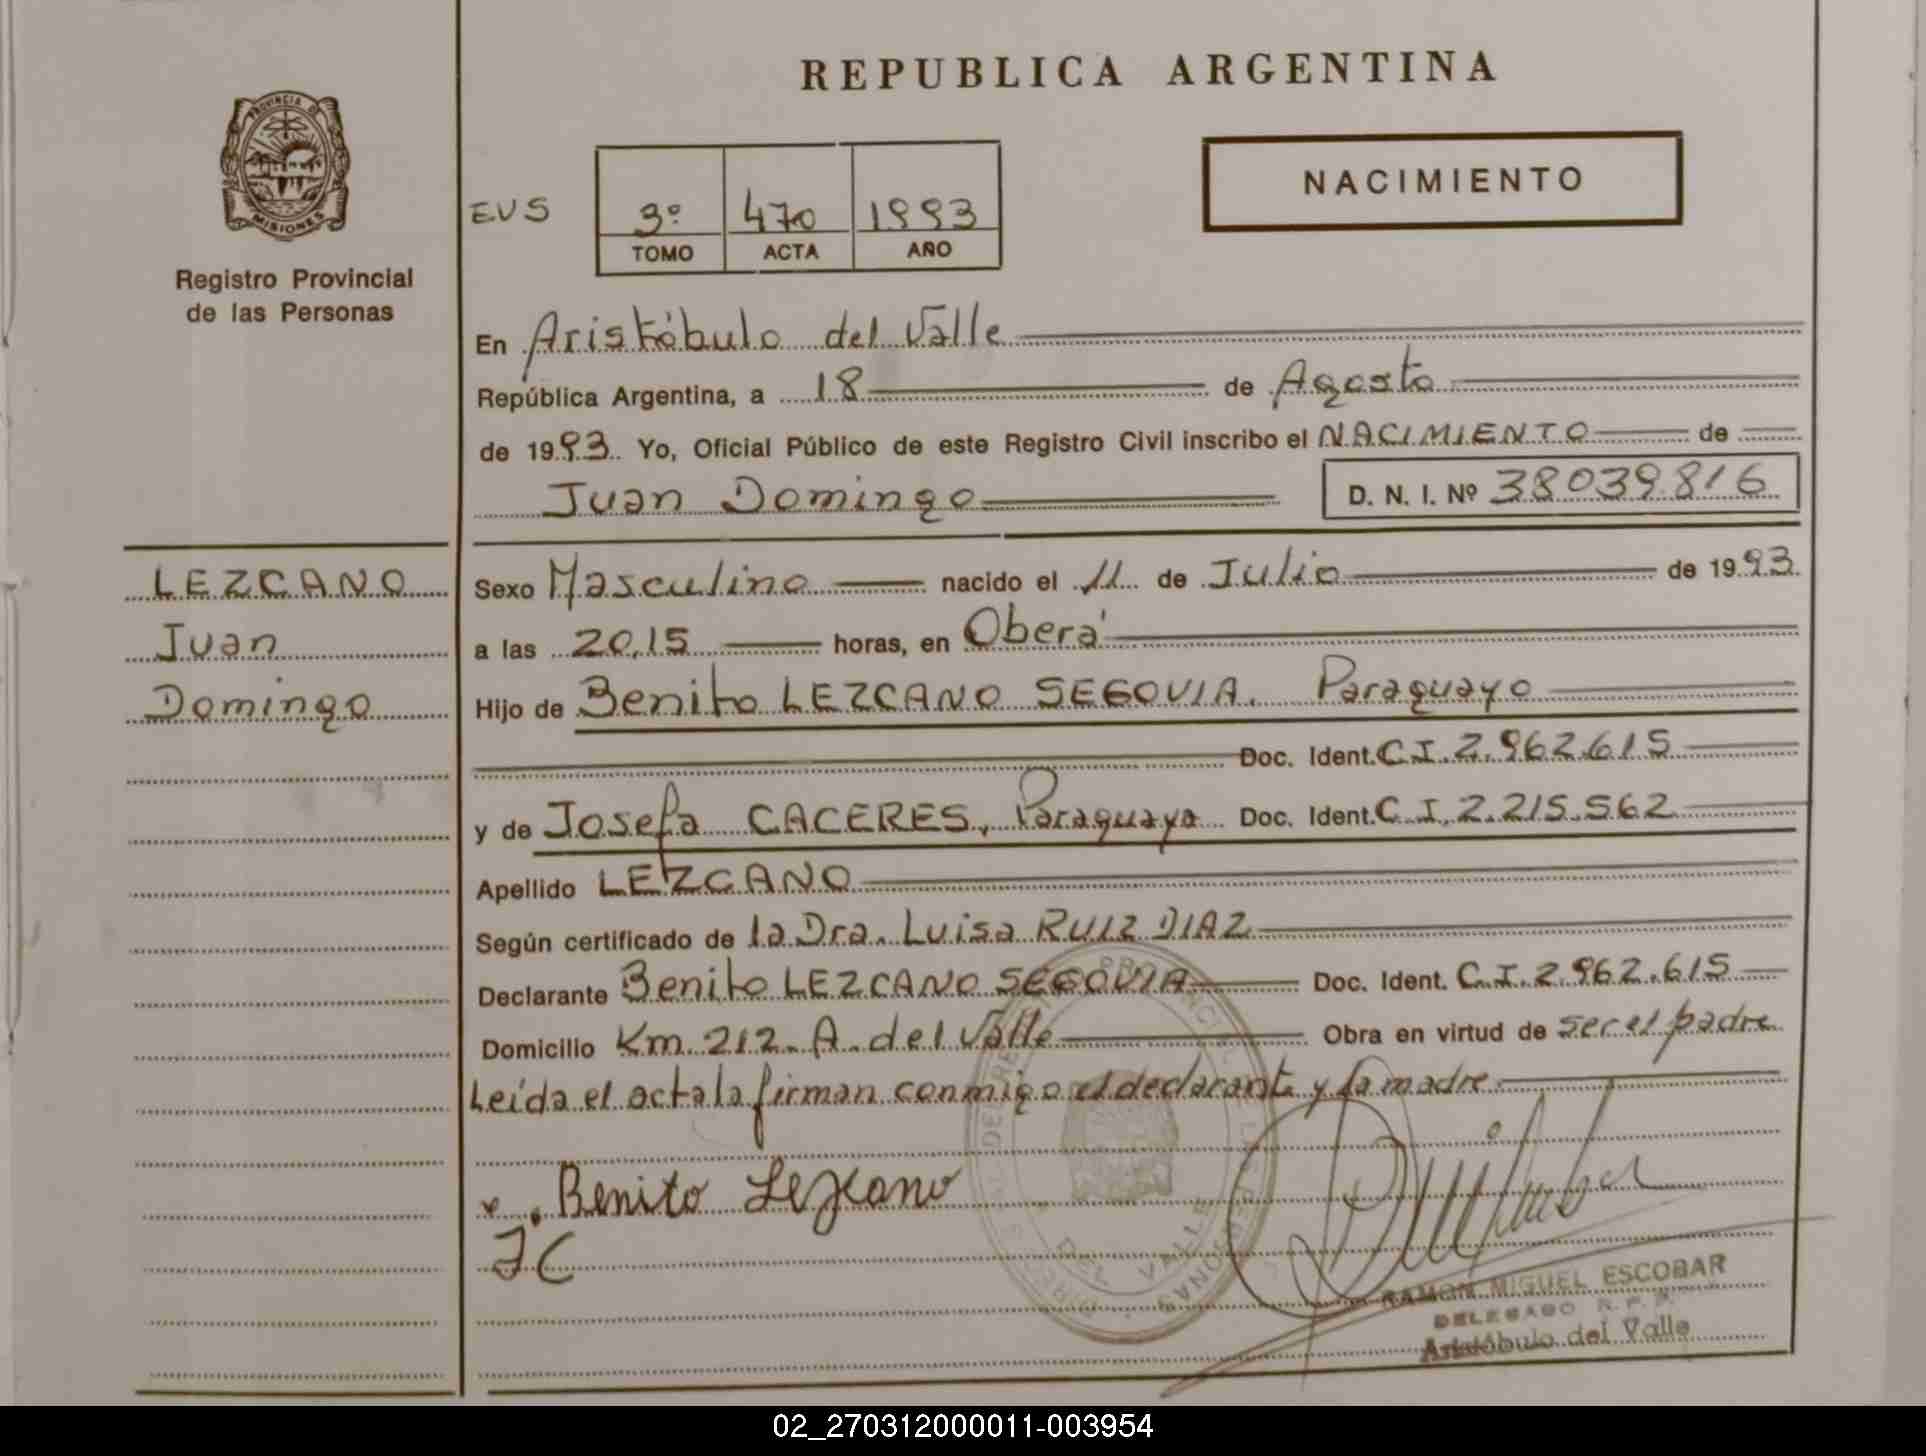 REPUBLICA ARGENTINA
PROVINCIA DE
MISIONES
Registro Provincial
de las Personas
NACIMIENTO
EVS
3º 470 1993
TOMO ACTA AÑO
En Aristóbulo del Valle
República Argentina, a 18 de Agosto
de 1993. Yo, Oficial Público de este Registro Civil inscribo el NACIMIENTO de
Juan Domingo D. N. I. Nº 38039816
LEZCANO
Juan
Domingo
Sexo Masculino nacido el 11 de Julio de 1993.
a las 20,15 horas, en Oberá
Hijo de Benito LEZCANO SEGOVIA. Paraguayo
Doc. Ident. C.I. 2.962.615
y de Josefa CACERES, Paraguaya Doc. Ident. C.I. 2.215.562
Apellido LEZCANO
Según certificado de la Dra. Luisa RUIZ DIAZ
Declarante Benito LEZCANO SEGOVIA Doc. Ident. C.I. 2.962.615
Domicilio Km 212. A. del Valle Obra en virtud de ser el padre
Leída el acta la firman conmigo el declarante y la madre.
Benito Lezcano
JC
RAMON MIGUEL ESCOBAR
DELEGADO R. P. P.
Aristóbulo del Valle
02_270312000011-003954